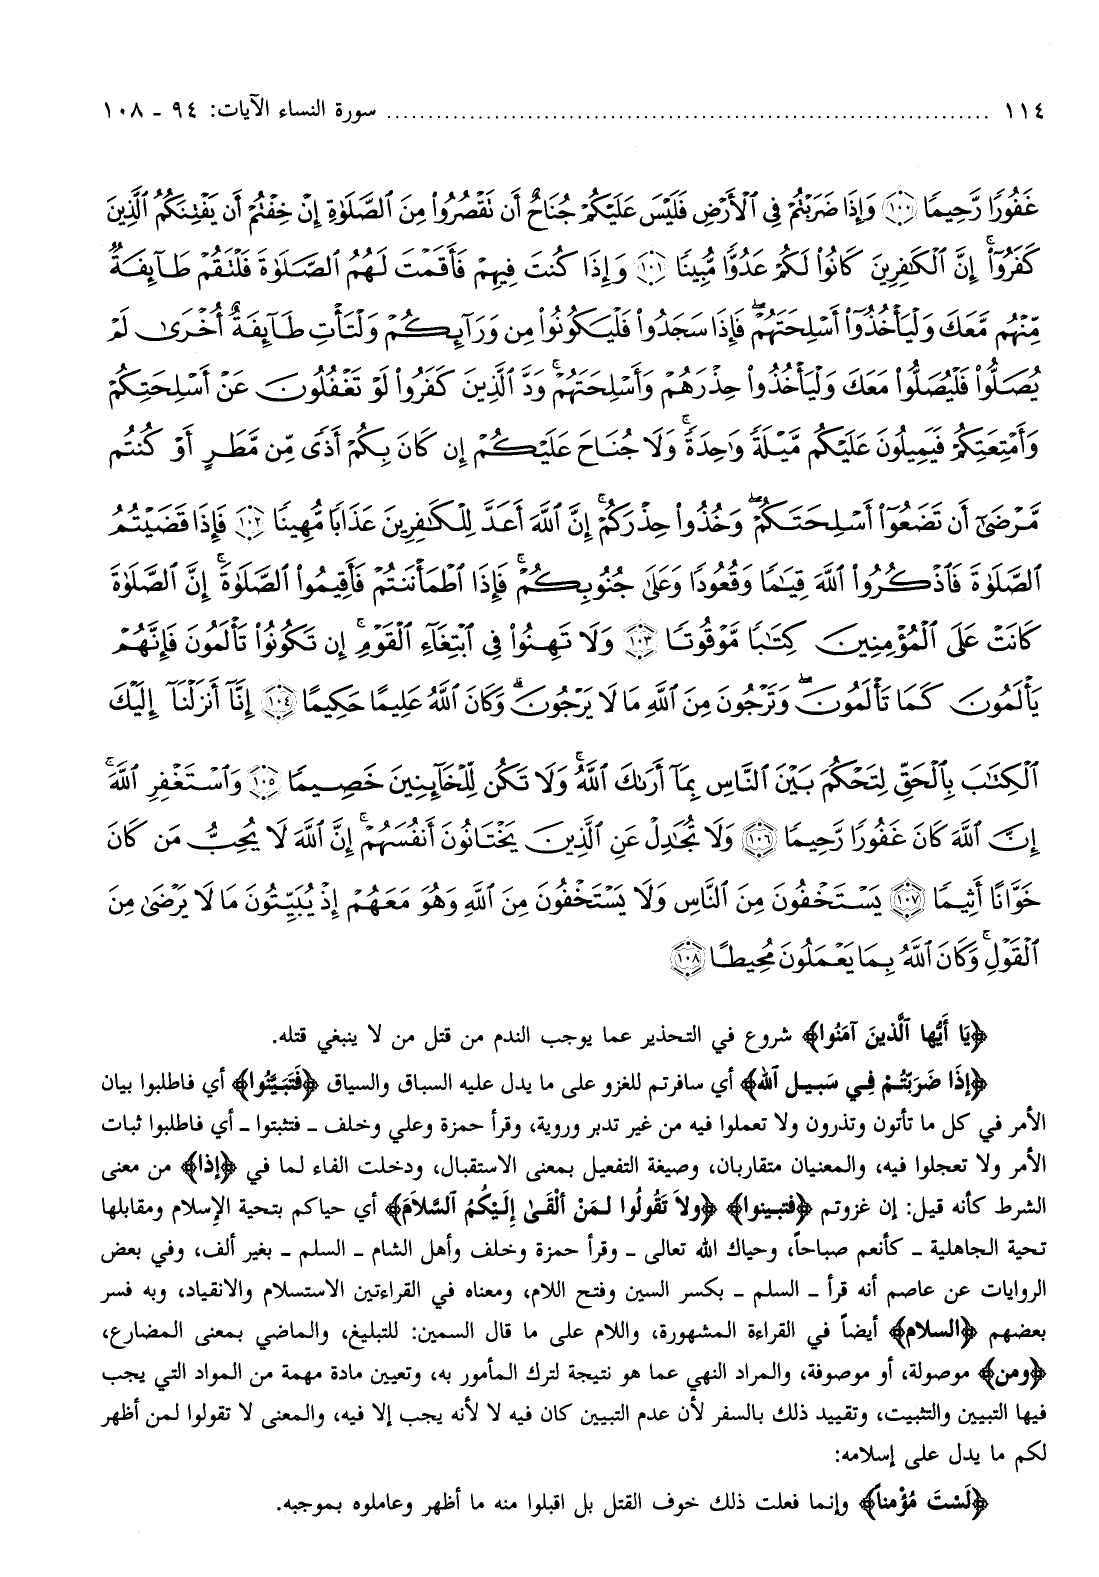 ١١٤ ........................................................ سورة النساء الآيات: ٩٤ ـ ١٠٨
غَفُورًا رَّحِيمًا ١٠٠ وَإِذَا ضَرَبْتُمْ فِى ٱلْأَرْضِ فَلَيْسَ عَلَيْكُمْ جُنَاحٌ أَن نَقْصُرُوا۟ مِنَ ٱلصَّلَوٰةِ إِنْ خِفْتُمْ أَن يَفْتِنَكُمُ ٱلَّذِينَ
كَفَرُوٓا۟ ۚ إِنَّ ٱلْكَـٰفِرِينَ كَانُوا۟ لَكُمْ عَدُوًّا مُّبِينًا ١٠١ وَإِذَا كُنتَ فِيهِمْ فَأَقَمْتَ لَهُمُ ٱلصَّلَوٰةَ فَلْتَقُمْ طَآئِفَةٌ
مِّنْهُم مَّعَكَ وَلْيَأْخُذُوٓا۟ أَسْلِحَتَهُمْ ۖ فَإِذَا سَجَدُوا۟ فَلْيَكُونُوا۟ مِن وَرَآئِكُمْ وَلْتَأْتِ طَآئِفَةٌ أُخْرَىٰ لَمْ
يُصَلُّوا۟ فَلْيُصَلُّوا۟ مَعَكَ وَلْيَأْخُذُوا۟ حِذْرَهُمْ وَأَسْلِحَتَهُمْ ۗ وَدَّ ٱلَّذِينَ كَفَرُوا۟ لَوْ تَغْفُلُونَ عَنْ أَسْلِحَتِكُمْ
وَأَمْتِعَتِكُمْ فَيَمِيلُونَ عَلَيْكُم مَّيْلَةً وَٰحِدَةً ۚ وَلَا جُنَاحَ عَلَيْكُمْ إِن كَانَ بِكُمْ أَذًى مِّن مَّطَرٍ أَوْ كُنتُم
مَّرْضَىٰٓ أَن تَضَعُوٓا۟ أَسْلِحَتَكُمْ ۖ وَخُذُوا۟ حِذْرَكُمْ ۗ إِنَّ ٱللَّهَ أَعَدَّ لِلْكَـٰفِرِينَ عَذَابًا مُّهِينًا ١٠٢ فَإِذَا قَضَيْتُمُ
ٱلصَّلَوٰةَ فَٱذْكُرُوا۟ ٱللَّهَ قِيَـٰمًا وَقُعُودًا وَعَلَىٰ جُنُوبِكُمْ ۚ فَإِذَا ٱطْمَأْنَنتُمْ فَأَقِيمُوا۟ ٱلصَّلَوٰةَ ۚ إِنَّ ٱلصَّلَوٰةَ
كَانَتْ عَلَى ٱلْمُؤْمِنِينَ كِتَـٰبًا مَّوْقُوتًا ١٠٣ وَلَا تَهِنُوا۟ فِى ٱبْتِغَآءِ ٱلْقَوْمِ ۖ إِن تَكُونُوا۟ تَأْلَمُونَ فَإِنَّهُمْ
يَأْلَمُونَ كَمَا تَأْلَمُونَ ۖ وَتَرْجُونَ مِنَ ٱللَّهِ مَا لَا يَرْجُونَ ۗ وَكَانَ ٱللَّهُ عَلِيمًا حَكِيمًا ١٠٤ إِنَّآ أَنزَلْنَآ إِلَيْكَ
ٱلْكِتَـٰبَ بِٱلْحَقِّ لِتَحْكُمَ بَيْنَ ٱلنَّاسِ بِمَآ أَرَىٰكَ ٱللَّهُ ۚ وَلَا تَكُن لِّلْخَآئِنِينَ خَصِيمًا ١٠٥ وَٱسْتَغْفِرِ ٱللَّهَ ۖ
إِنَّ ٱللَّهَ كَانَ غَفُورًا رَّحِيمًا ١٠٦ وَلَا تُجَـٰدِلْ عَنِ ٱلَّذِينَ يَخْتَانُونَ أَنفُسَهُمْ ۚ إِنَّ ٱللَّهَ لَا يُحِبُّ مَن كَانَ
خَوَّانًا أَثِيمًا ١٠٧ يَسْتَخْفُونَ مِنَ ٱلنَّاسِ وَلَا يَسْتَخْفُونَ مِنَ ٱللَّهِ وَهُوَ مَعَهُمْ إِذْ يُبَيِّتُونَ مَا لَا يَرْضَىٰ مِنَ
ٱلْقَوْلِ ۚ وَكَانَ ٱللَّهُ بِمَا يَعْمَلُونَ مُحِيطًا ١٠٨
﴿يَا أَيُّها ٱلَّذينَ آمَنُوا﴾ شروع في التحذير عما يوجب الندم من قتل من لا ينبغي قتله.
﴿إذَا ضَرَبْتُمْ فِي سَبِيل ٱلله﴾ أي سافرتم للغزو على ما يدل عليه السباق والسياق ﴿فَتَبَيَّنُوا﴾ أي فاطلبوا بيان
الأمر في كل ما تأتون وتذرون ولا تعملوا فيه من غير تدبر وروية، وقرأ حمزة وعلي وخلف ـ فتثبتوا ـ أي فاطلبوا ثبات
الأمر ولا تعجلوا فيه، والمعنيان متقاربان، وصيغة التفعيل بمعنى الاستقبال، ودخلت الفاء لما في ﴿إذا﴾ من معنى
الشرط كأنه قيل: إن غزوتم ﴿فتبينوا﴾ ﴿ولاَ تَقُولُوا لـمَنْ أَلْقَىٰ إِلَيْكُمُ ٱلسَّلاَمَ﴾ أي حياكم بتحية الإسلام ومقابلها
تحية الجاهلية ـ كأنعم صباحاً، وحياك الله تعالى ـ وقرأ حمزة وخلف وأهل الشام ـ السلم ـ بغير ألف، وفي بعض
الروايات عن عاصم أنه قرأ ـ السلم ـ بكسر السين وفتح اللام، ومعناه في القراءتين الاستسلام والانقياد، وبه فسر
بعضهم ﴿السلام﴾ أيضاً في القراءة المشهورة، واللام على ما قال السمين: للتبليغ، والماضي بمعنى المضارع،
﴿ومن﴾ موصولة، أو موصوفة، والمراد النهي عما هو نتيجة لترك المأمور به، وتعيين مادة مهمة من المواد التي يجب
فيها التبيين والتثبيت، وتقييد ذلك بالسفر لأن عدم التبيين كان فيه لا لأنه يجب إلا فيه، والمعنى لا تقولوا لمن أظهر
لكم ما يدل على إسلامه:
﴿لَسْتَ مُؤْمناً﴾ وإنما فعلت ذلك خوف القتل بل اقبلوا منه ما أظهر وعاملوه بموجبه.